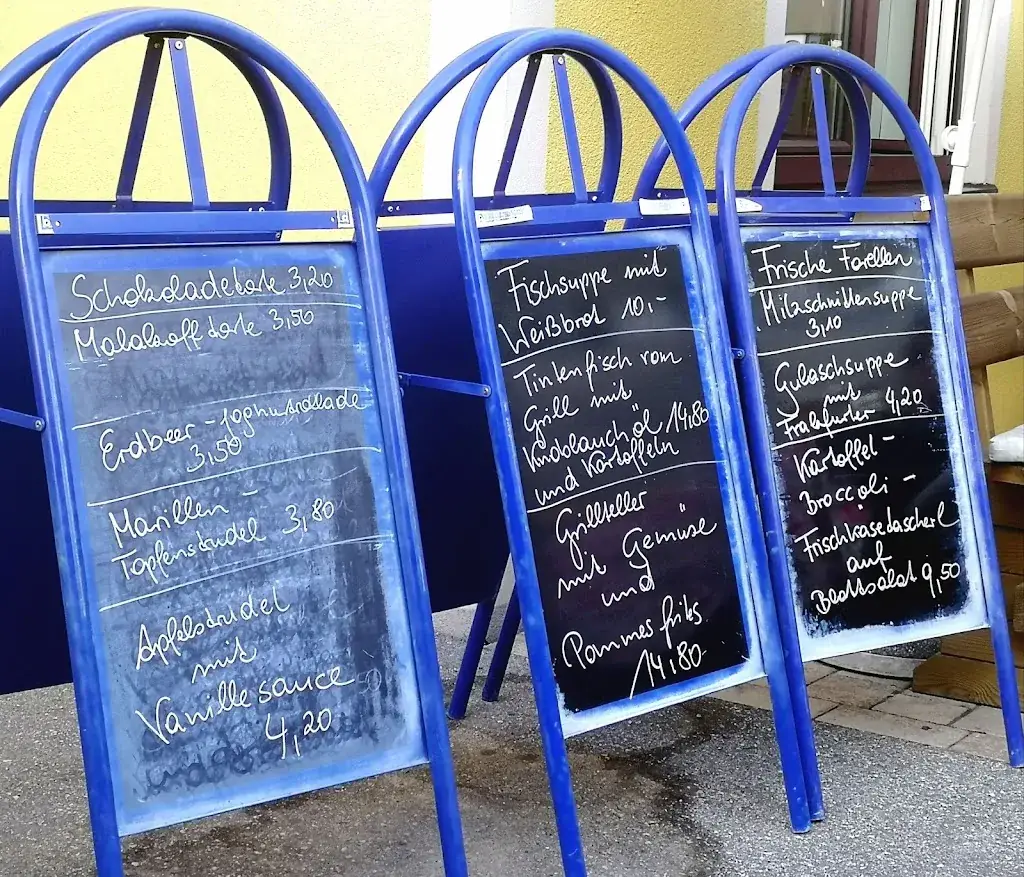 Schokoladetorte 3,20
Malakofftorte 3,50
Erdbeer-Joghurtroulade
3,50
Marillen -
Topfenstrudel 3,80
Apfelstrudel
mit
Vanillesauce
4,20
Fischsuppe mit
Weißbrot 10,-
Tintenfisch vom
Grill mit
Knoblauchöl 14,80
und Kartoffeln
Grillteller
mit Gemüse
und
Pommes frits
14,80-
Frische Forellen
Milzschnittensuppe
3,10
Gulaschsuppe
mit
Frankfurter 4,20
Kartoffel -
Broccoli -
Frischkäsetascherl
auf
Blattsalat 9,50